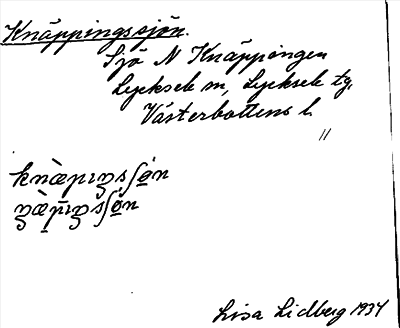 Knäppingssjön.
Sjö N Knäppingen
Lycksele m, Lycksele tg,
Västerbottens l.
"
knæ̀pıŋsʃǿ̣n
Lisa Lidberg 1934